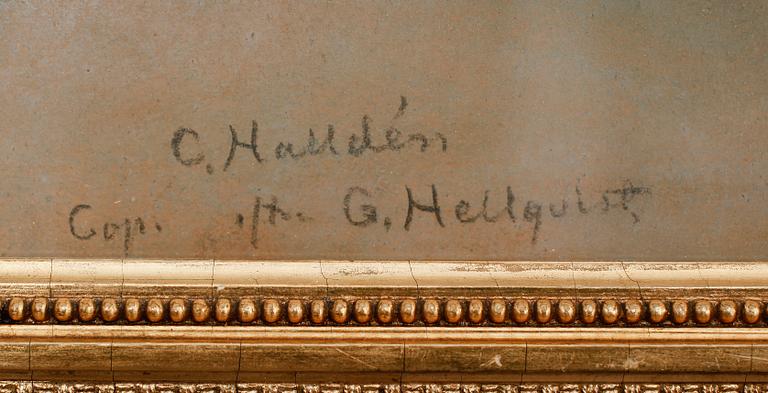 C. Halldén
Cop. eft. G. Hellquist